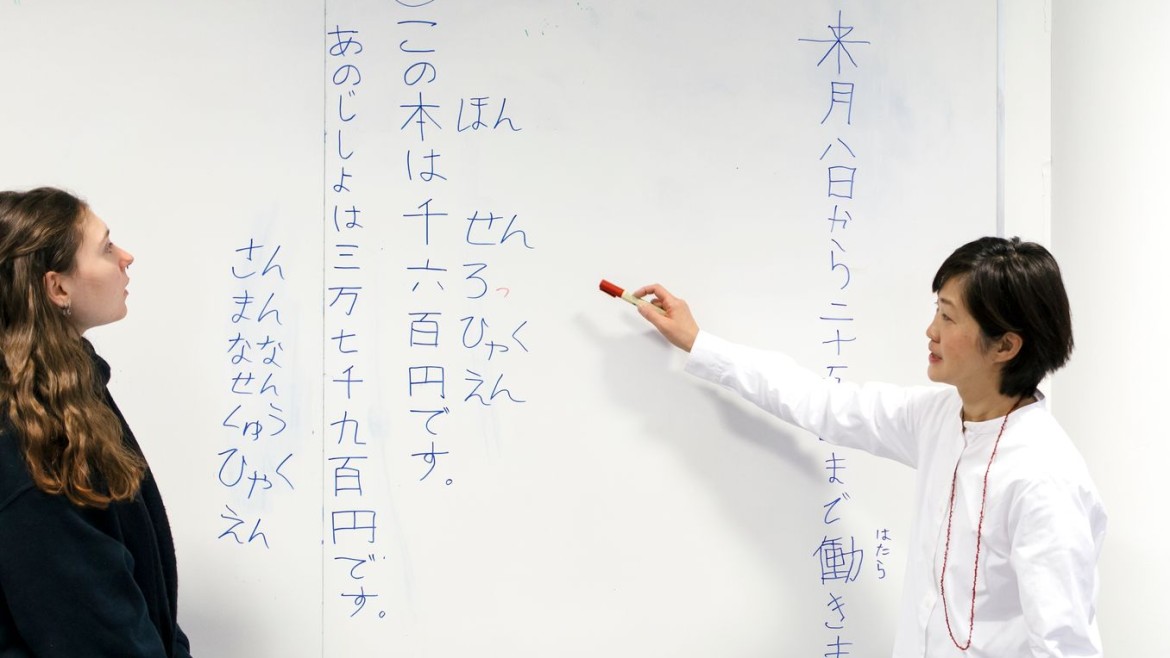 はたら
来月八日から二十まで働きま
ほん
せん
ろっ
ひゃく
えん
この本は千六百円です。
あのじしょは三万七千九百円です。
さん
まん
なな
せん
くゅう
ひゃく
えん